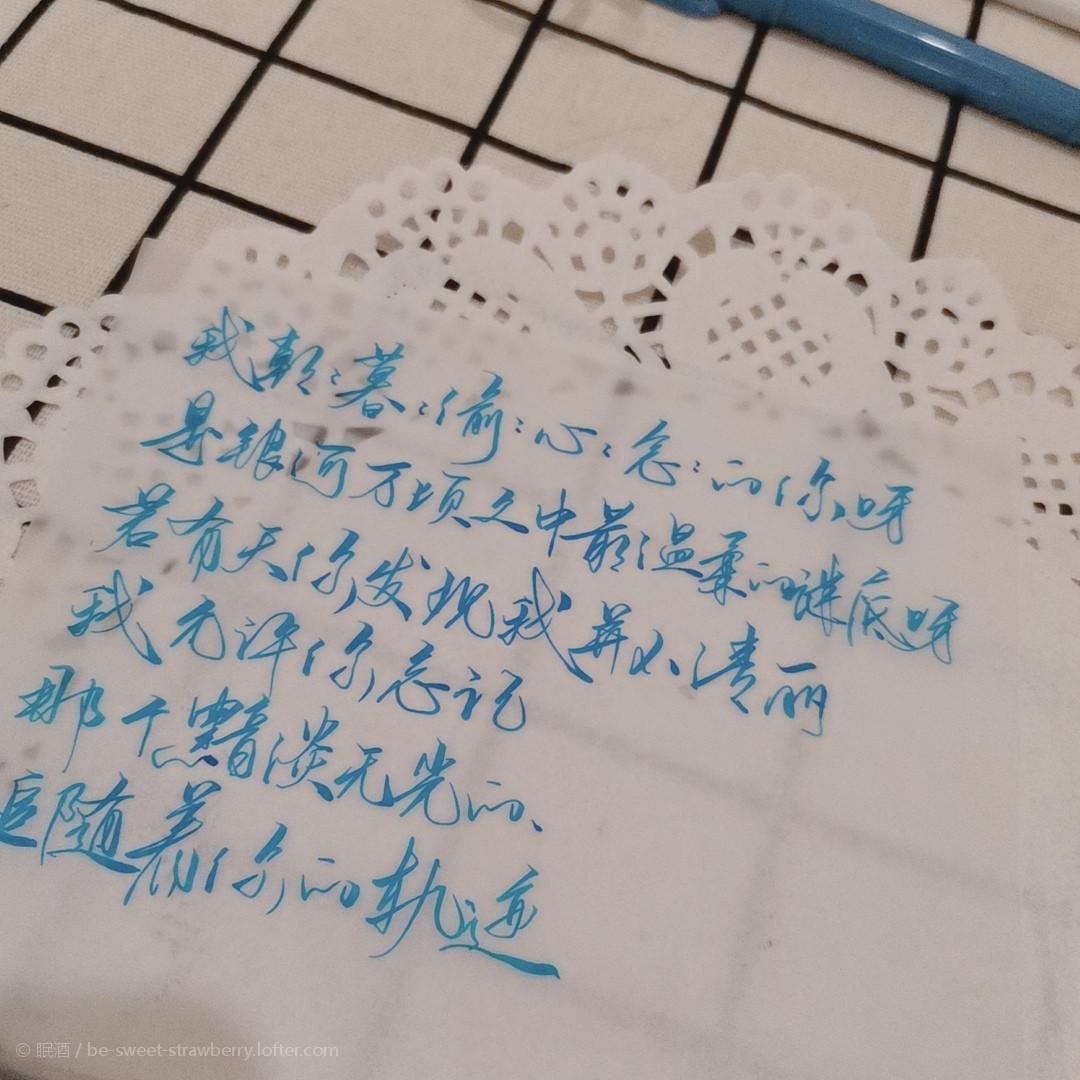 我朝:暮:偷:心:念:的你呀
是银河万顷之中最温柔的谜底呀
若有天你发现我并不清丽
我允许你忘记
那个黯淡无光的、
追随着你的轨迹
© 眠酒 / be-sweet-strawberry.lofter.com